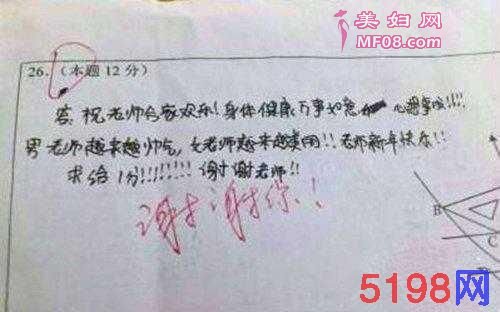 美妇网
MF08.com
26.（本题12分）
答：祝老师合家欢乐！身体健康，万事如意 心想事成！！！！
男老师越来越帅气，女老师越来越美丽！！老师新年快乐！！
求给1分！！！！！！！！谢谢老师！！
谢谢你！！
B
C
5198网